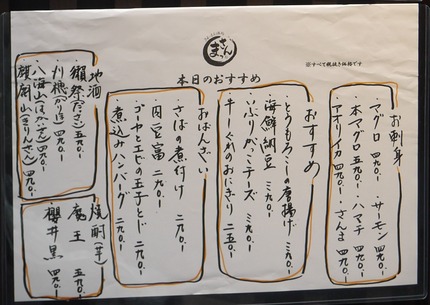 さんまっ
※すべて税抜き価格です
本日のおすすめ
お刺身
・マグロ 四九〇- ・サーモン 四九〇-
・本マグロ 五九〇- ・ハマチ 四九〇-
・アオリイカ 四九〇- ・さんま 四九〇-
おすすめ
・とうもろこしの唐揚げ 三九〇-
・海鮮納豆 三九〇-
・いぶりがっこチーズ 三九〇-
・牛しぐれのおにぎり 二五〇-
おばんざい
・さばの煮付け 二九〇-
・肉豆富 二九〇-
・ゴーヤとエビの玉子とじ 二九〇-
・煮込みハンバーグ 二九〇-
地酒
・獺祭(だっさい) 五九〇-
・刈穂(かりほ) 四九〇-
・八海山(はっかいさん) 四九〇-
・麒麟山(きりんざん) 四九〇-
焼酎(芋)
・魔王 五九〇-
・櫻井 黒 四九〇-